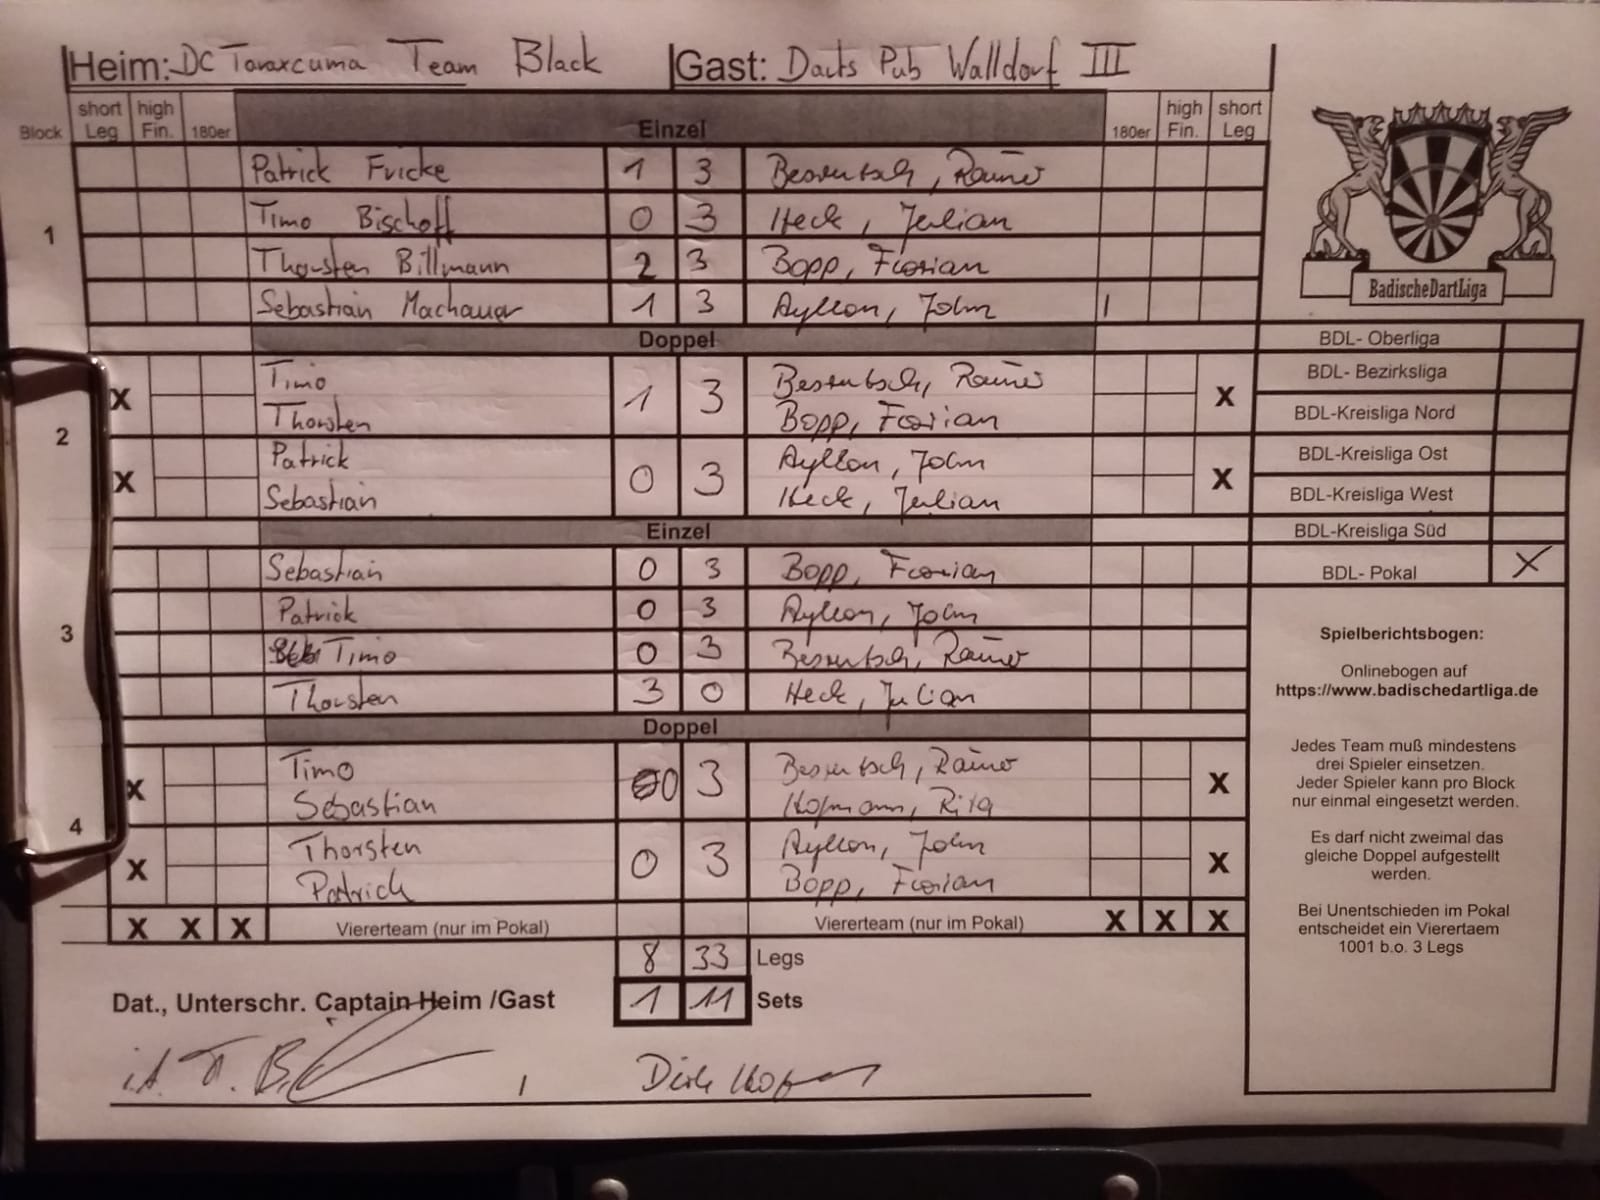 Heim: DC Taraxcuma Team Black Gast: Darts Pub Walldorf III
Block short Leg high Fin. 180er Einzel 180er high Fin. short Leg
Patrick Fricke 1 3 Rainer
1 Timo Bischoff 0 3 Heck, Julian
Thorsten Billmann 2 3 Bopp, Florian
Sebastian Machauer 1 3 Ayllon, John I
BadischeDartLiga
Doppel
BDL- Oberliga
BDL- Bezirksliga
BDL-Kreisliga Nord
BDL-Kreisliga Ost
BDL-Kreisliga West
BDL-Kreisliga Süd
BDL- Pokal X
2
X Timo 1 3 Rainer X
Thorsten Bopp, Florian
X Patrick 0 3 Ayllon, John X
Sebastian Heck, Julian
Einzel
3
Sebastian 0 3 Bopp, Florian
Patrick 0 3 Ayllon, John
Timo 0 3 Rainer
Thorsten 3 0 Heck, Julian
Doppel
4
X Timo 0 3 Rainer X
Sebastian Hofmann, Rita
X Thorsten 0 3 Ayllon, John X
Patrick Bopp, Florian
X X X Vierterteam (nur im Pokal) Vierterteam (nur im Pokal) X X X
8 33 Legs
Dat., Unterschr. Captain Heim /Gast 1 11 Sets
i.A. T. , Dirk
Spielberichtsbogen:
Onlinebogen auf
https://www.badischedartliga.de
Jedes Team muß mindestens
drei Spieler einsetzen.
Jeder Spieler kann pro Block
nur einmal eingesetzt werden.
Es darf nicht zweimal das
gleiche Doppel aufgestellt
werden.
Bei Unentschieden im Pokal
entscheidet ein Vierertaem
1001 b.o. 3 Legs